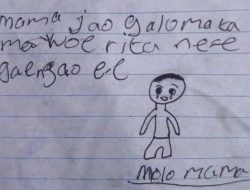 mama jao galomaka
ma woe rita nefe
gaengao el
molo mama